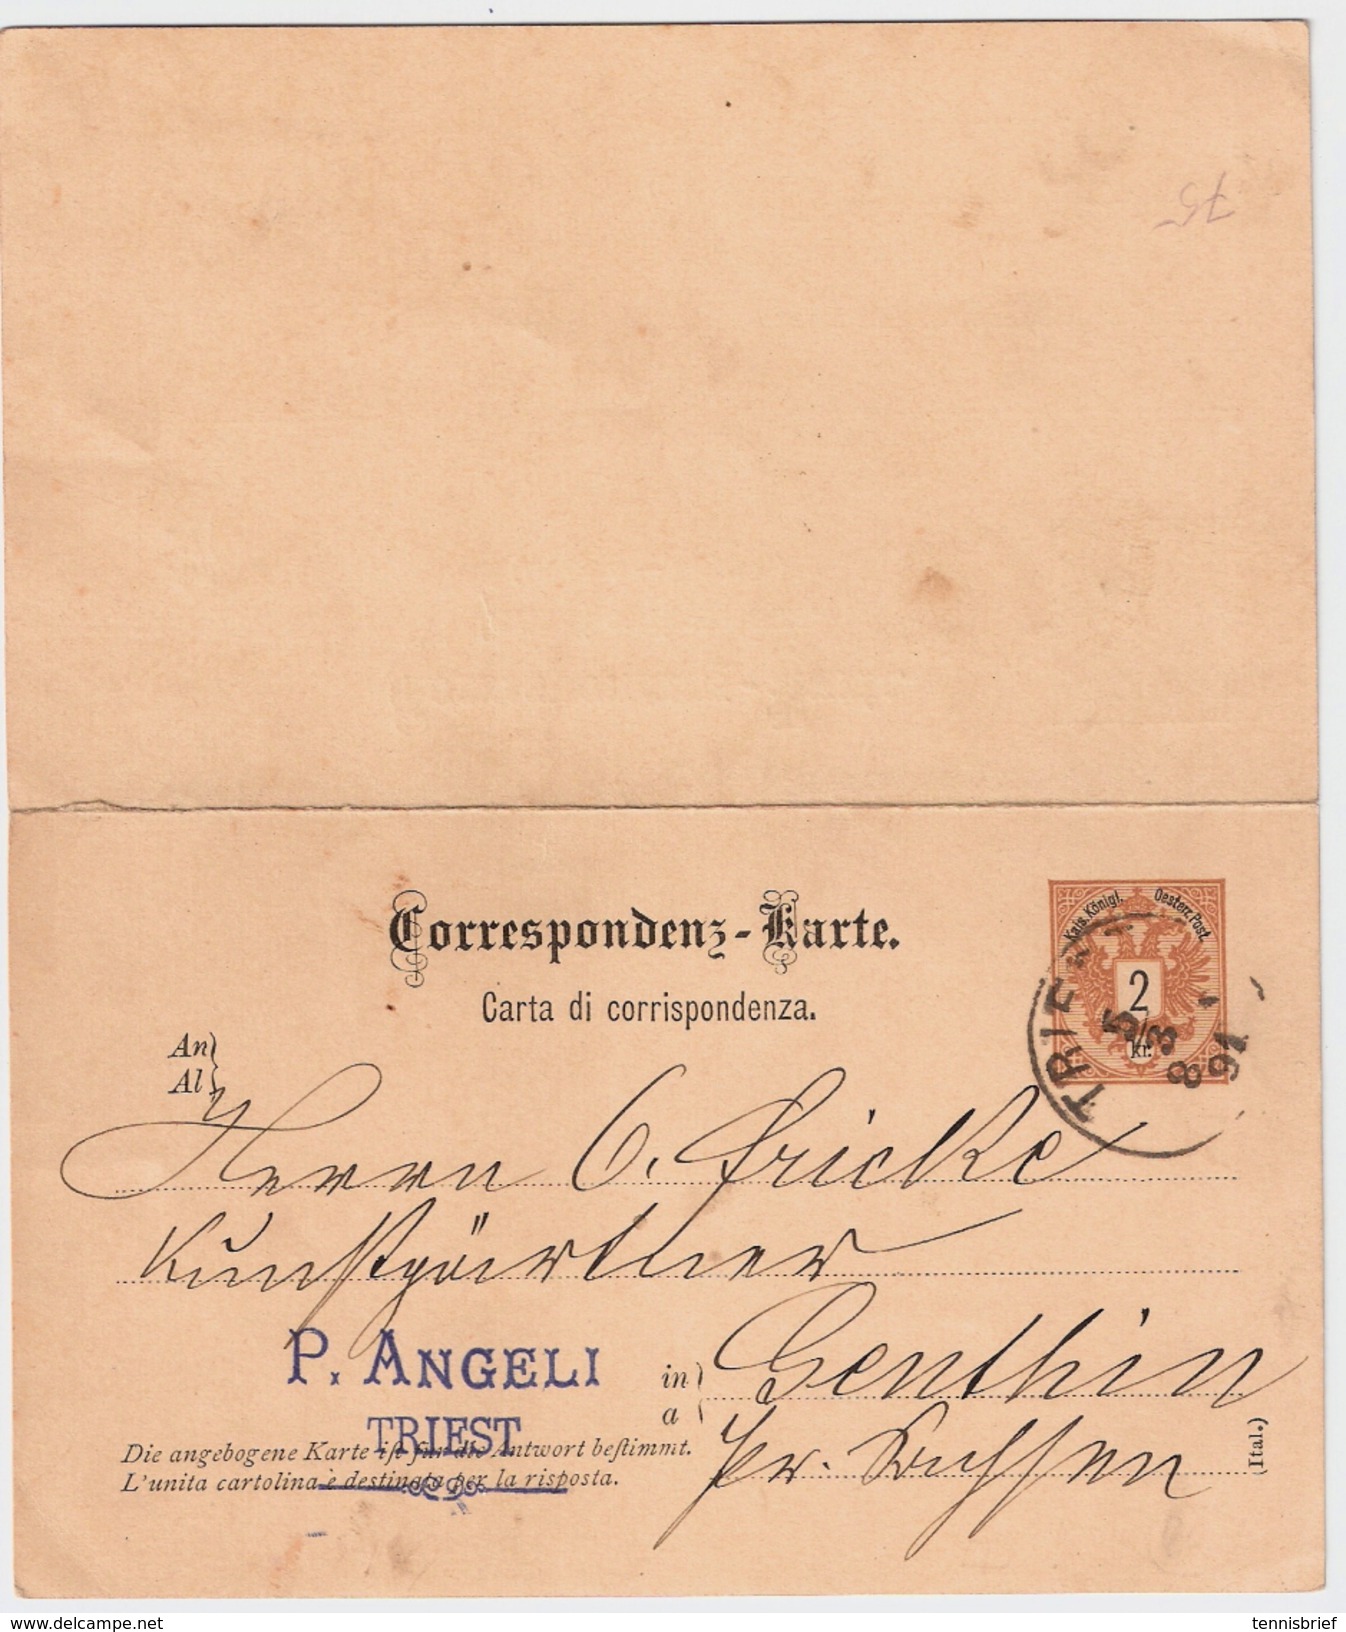 75
Correspondenz-Karte.
Carta di corrispondenza.
Kais. Königl. Oesterr. Post.
2 kr.
TRIES
5/3
8
91
An
Al
Herrn C. Fricke
Kunstgärtner
P. ANGELI
TRIEST
in
a
Genthin
Pr. Sachsen
Die angebogene Karte iſt für die Antwort beſtimmt.
L'unita cartolina è destinata per la risposta.
(Ital.)
www.delcampe.net
tennisbrief